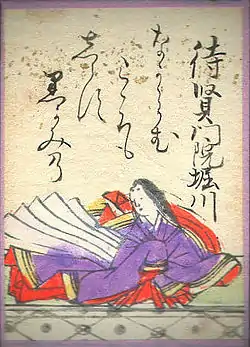 待賢門院堀川
ながからむ
こころも
しらず
黒かみの